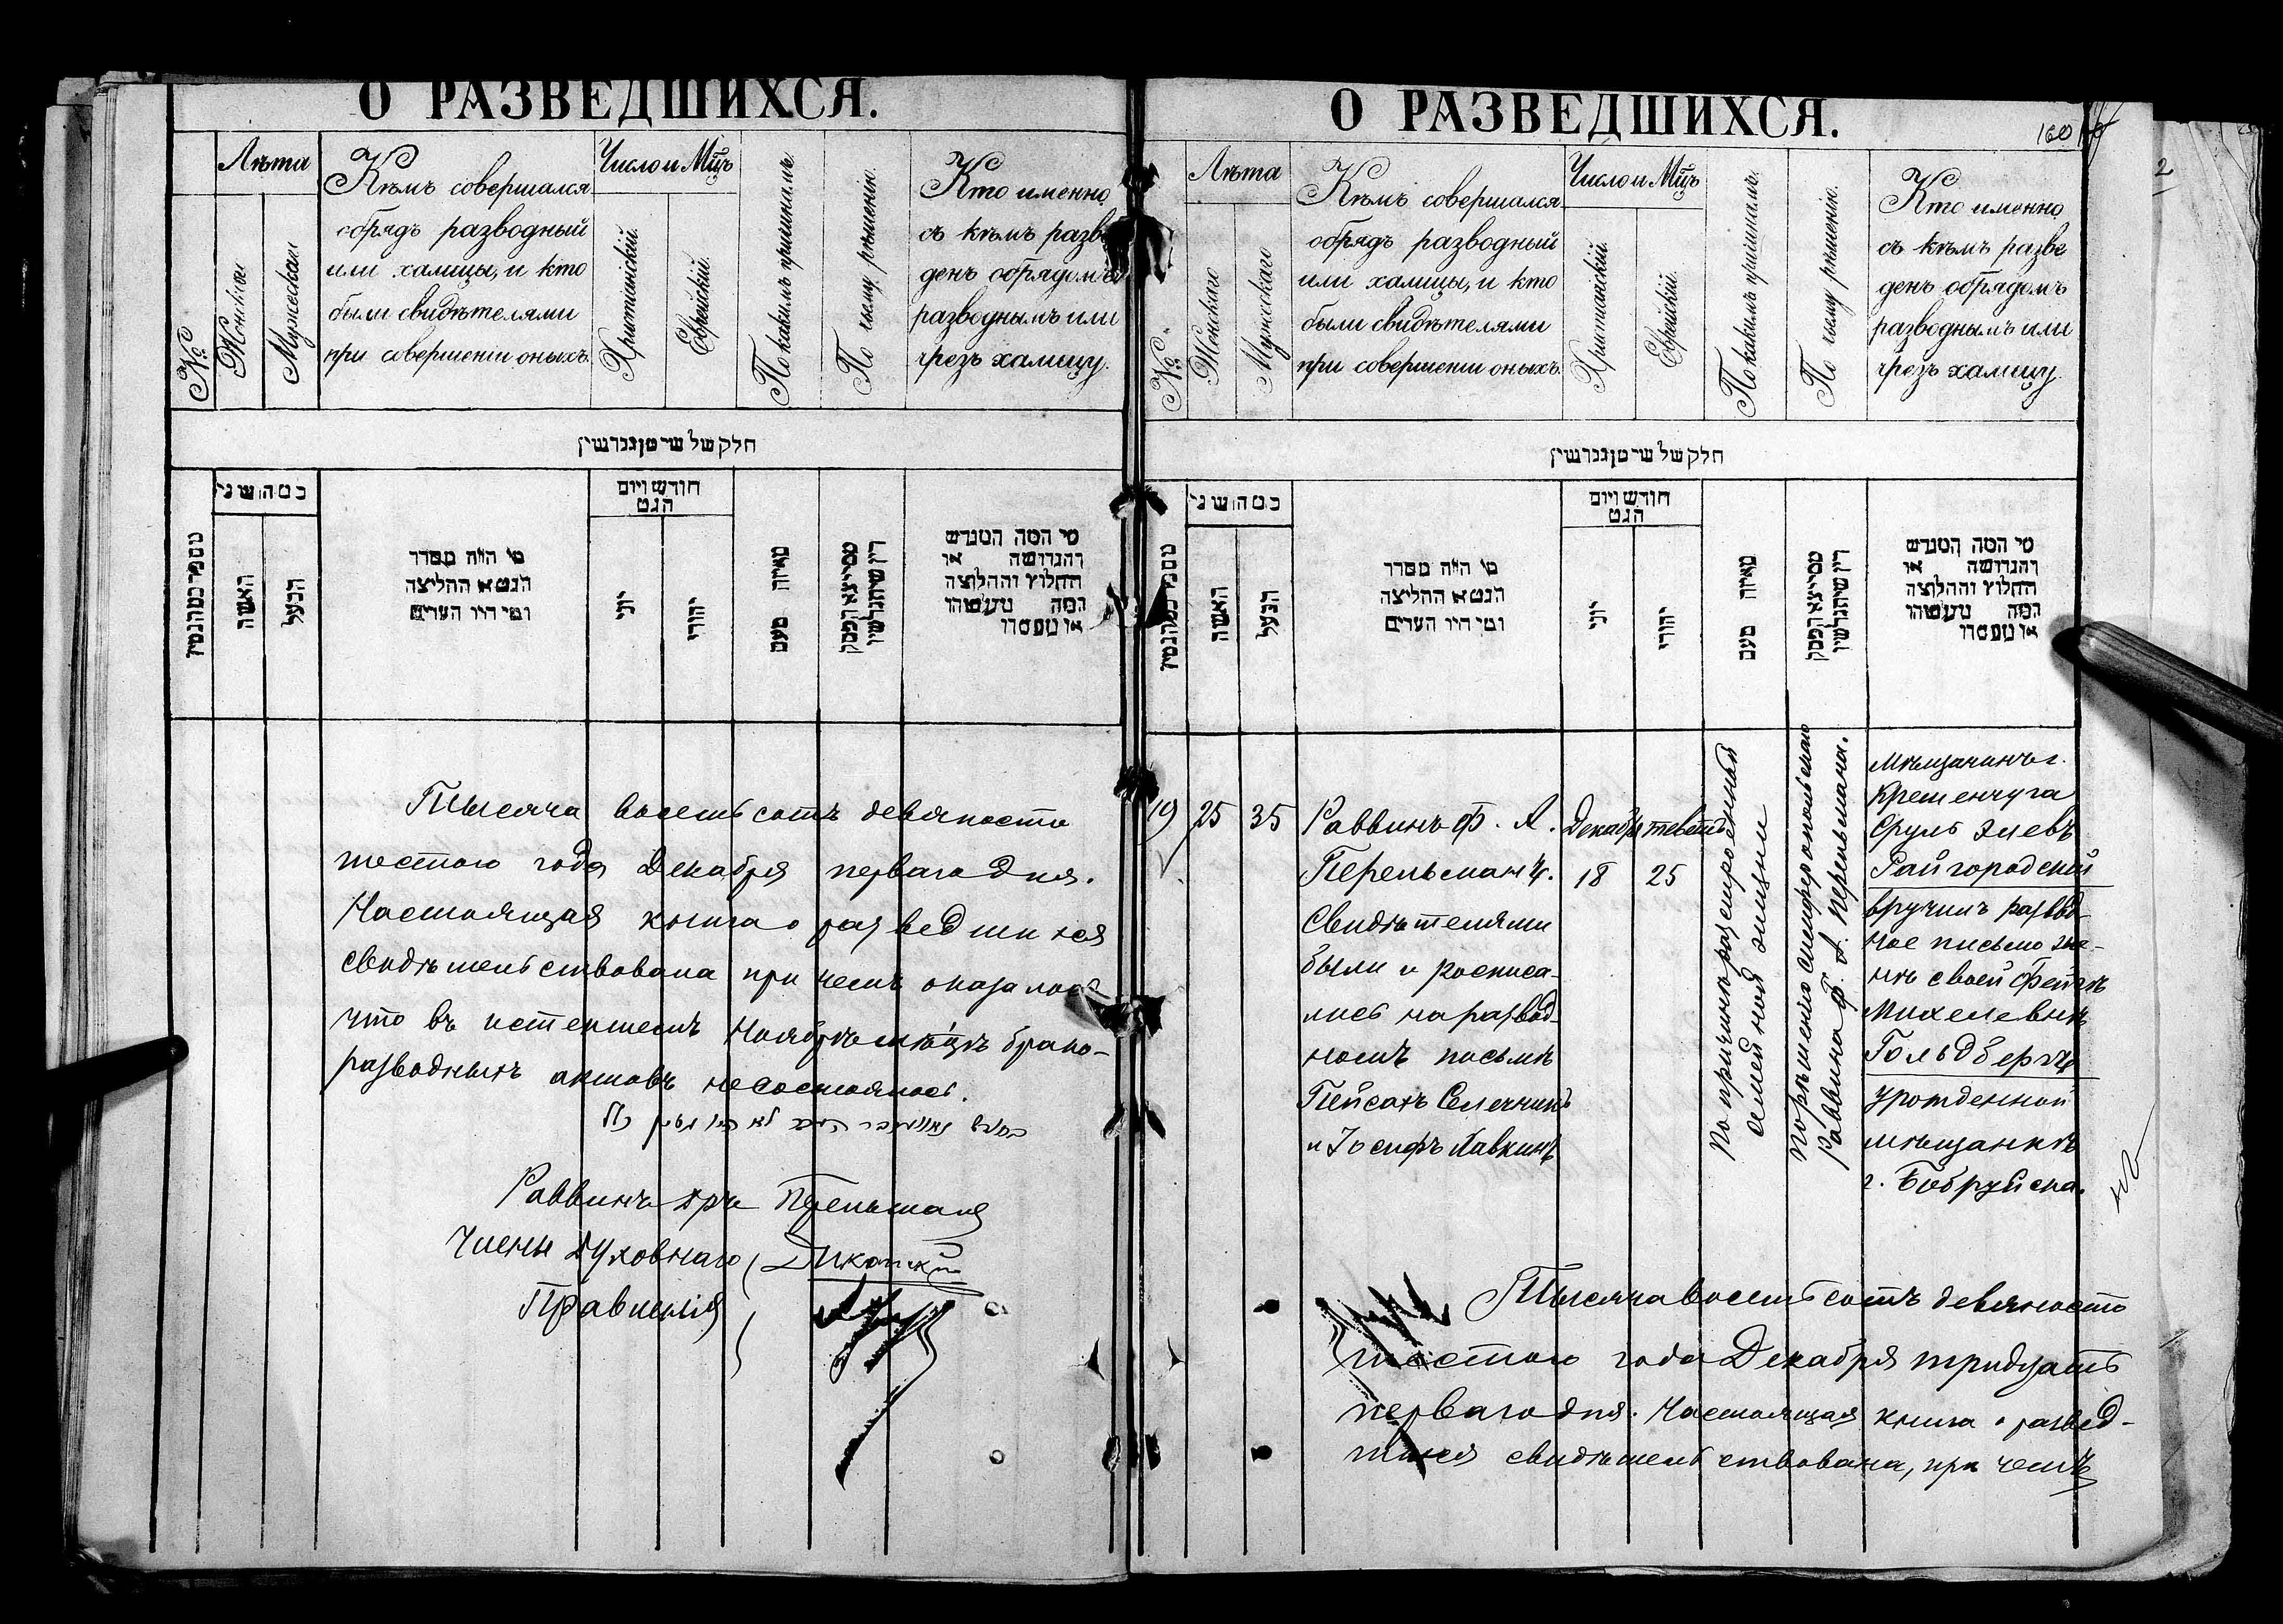 О РАЗВЕДШИХСЯ.
№
Лѣта
Женскаго
Мужескаго
Кѣмъ совершался
обрядъ разводный
или халицы, и кто
были свидѣтелями
при совершеніи оныхъ.
Число и Мцъ
Христіанскій.
Еврейскій.
По какимъ причинамъ.
По чьему рѣшенію.
Кто именно
съ кѣмъ разве
денъ обрядомъ
разводнымъ или
чрезъ халицу.
חודש ויום
הגט
האשה
הבעל
מי היה מסדר
הגט או החליצה
ומי היו העדים
יוני
יהודי
מאיזה טעם
מי המה המגרש
והגרושה או
החלוץ והחלוצה
Тысяча восемьсотъ девяносто
шестого года Декабря перваго дня.
Настоящая книга о разведшихся
свидѣтельствована при чемъ оказалось
что въ истекшемъ Ноябрѣ мѣсяцѣ брако-
разводныхъ актовъ не состоялось.
Раввинъ дръ Перельманъ
Члены Духовнаго
Правленія
О РАЗВЕДШИХСЯ.
160
2
№
Лѣта
Женскаго
Мужескаго
Кѣмъ совершался
обрядъ разводный
или халицы, и кто
были свидѣтелями
при совершеніи оныхъ.
Число и Мцъ
Христіанскій.
Еврейскій.
По какимъ причинамъ.
По чьему рѣшенію.
Кто именно
съ кѣмъ разве
денъ обрядомъ
разводнымъ или
чрезъ халицу.
חודש ויום
הגט
האשה
הבעל
מי היה מסדר
הגט או החליצה
ומי היו העדים
יוני
יהודי
מאיזה טעם
מי המה המגרש
והגרושה או
החלוץ והחלוצה
19 25 35
Раввинъ Ф. А.
Перельманъ.
Свидѣтелями
были и росписа-
лись на развод-
номъ письмѣ
Пейсахъ Селечникъ
и Іосифъ Хавкинъ
Декабр. теветъ
18 25
По причинѣ разстроенной
семейной жизни
По рѣшенію Симферопольскаго
Раввина Ф. А. Перельмана.
Мѣщанинъ г.
Кременчуга
Сруль Элевъ
Райгородскій
вручилъ развод-
ное письмо же-
нѣ своей Фейгѣ
Михелевнѣ
Гольдбергъ
урожденной
мѣщанкѣ
г. Бобруйска.
Тысяча восемьсотъ девяносто
шестого года Декабря тридцать
перваго дня. Настоящая книга о развед-
шихся свидѣтельствована, при чемъ